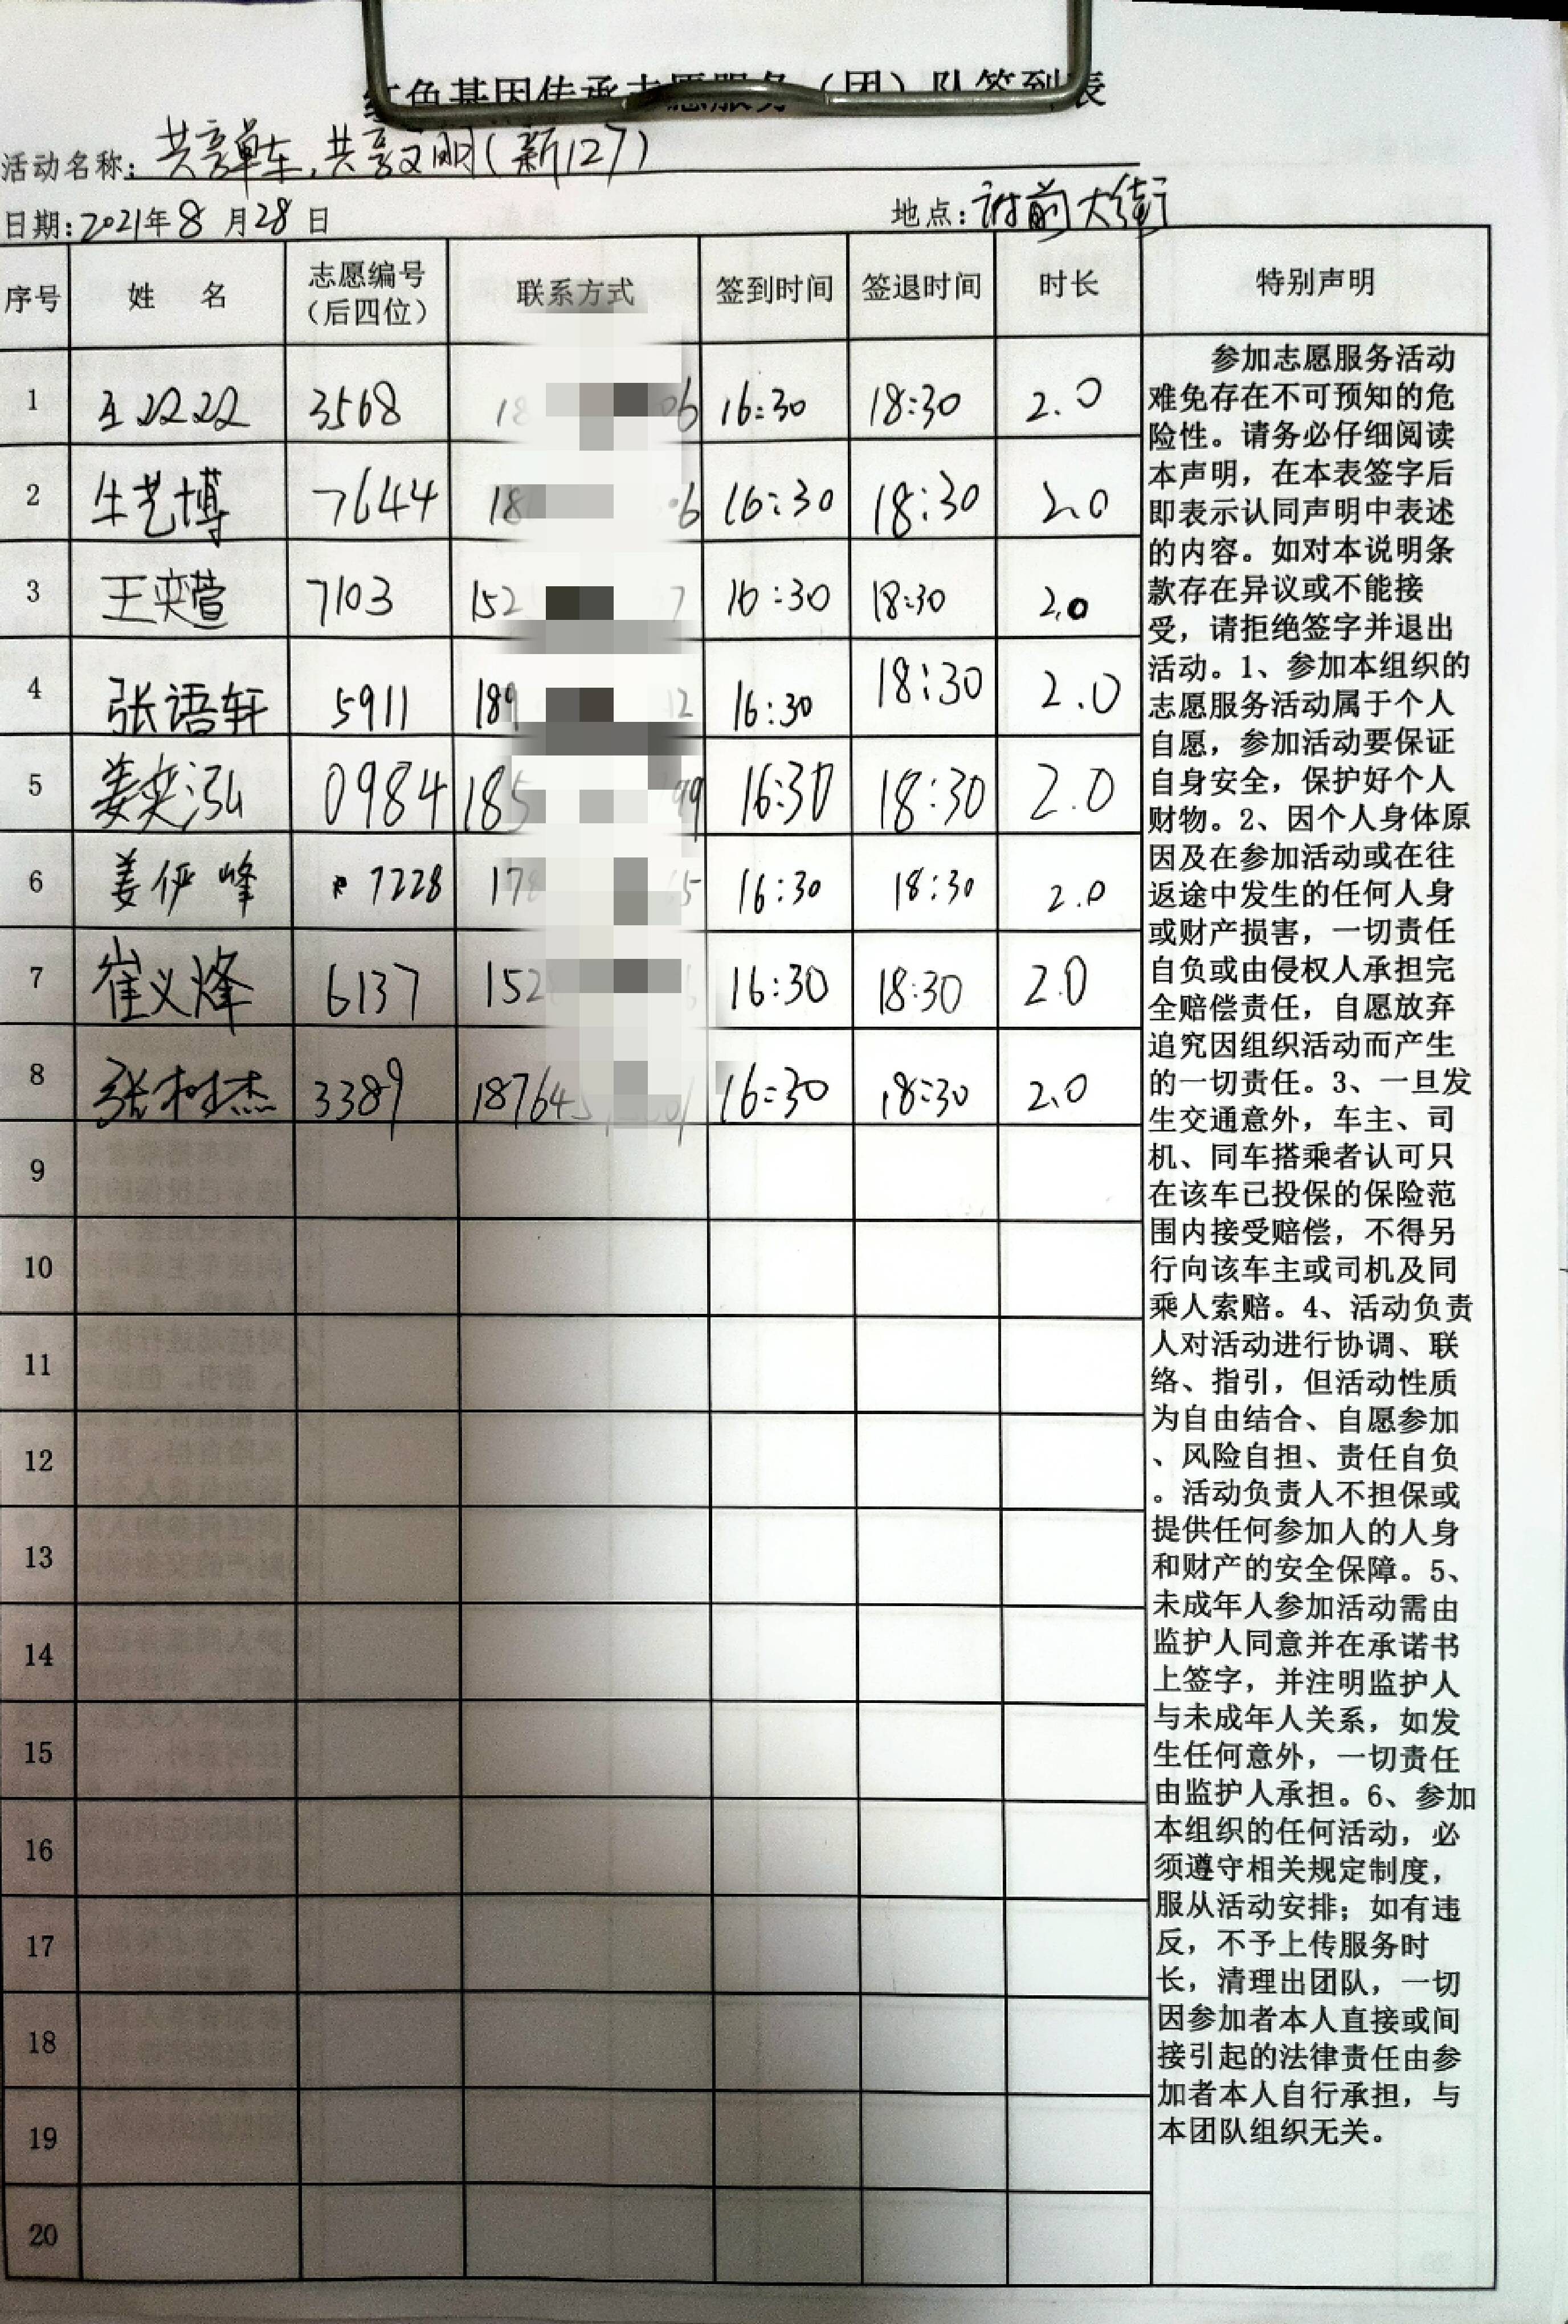 红色基因传承志愿服务（团）队签到表
活动名称：共享单车，共享文明（新127）
日期：2021年8月28日 地点：府前大街
序号 姓 名 志愿编号（后四位） 联系方式 签到时间 签退时间 时长 特别声明
1 3568 18 06 16:30 18:30 2.0
2 牛艺博 7644 18 6 16:30 18:30 2.0
3 王奕萱 7103 152 7 16:30 18:30 2.0
4 张语轩 5911 189 12 16:30 18:30 2.0
5 姜奕泓 0984 185 99 16:30 18:30 2.0
6 姜俨峰 7228 178 65 16:30 18:30 2.0
7 崔义烽 6137 152 16:30 18:30 2.0
8 张树杰 3389 18764 16:30 18:30 2.0
9
10
11
12
13
14
15
16
17
18
19
20
参加志愿服务活动
难免存在不可预知的危
险性。请务必仔细阅读
本声明，在本表签字后
即表示认同声明中表述
的内容。如对本说明条
款存在异议或不能接
受，请拒绝签字并退出
活动。1、参加本组织的
志愿服务活动属于个人
自愿，参加活动要保证
自身安全，保护好个人
财物。2、因个人身体原
因及在参加活动或在往
返途中发生的任何人身
或财产损害，一切责任
自负或由侵权人承担完
全赔偿责任，自愿放弃
追究因组织活动而产生
的一切责任。3、一旦发
生交通意外，车主、司
机、同车搭乘者认可只
在该车已投保的保险范
围内接受赔偿，不得另
行向该车主或司机及同
乘人索赔。4、活动负责
人对活动进行协调、联
络、指引，但活动性质
为自由结合、自愿参加
、风险自担、责任自负
。活动负责人不担保或
提供任何参加人的人身
和财产的安全保障。5、
未成年人参加活动需由
监护人同意并在承诺书
上签字，并注明监护人
与未成年人关系，如发
生任何意外，一切责任
由监护人承担。6、参加
本组织的任何活动，必
须遵守相关规定制度，
服从活动安排；如有违
反，不予上传服务时
长，清理出团队，一切
因参加者本人直接或间
接引起的法律责任由参
加者本人自行承担，与
本团队组织无关。